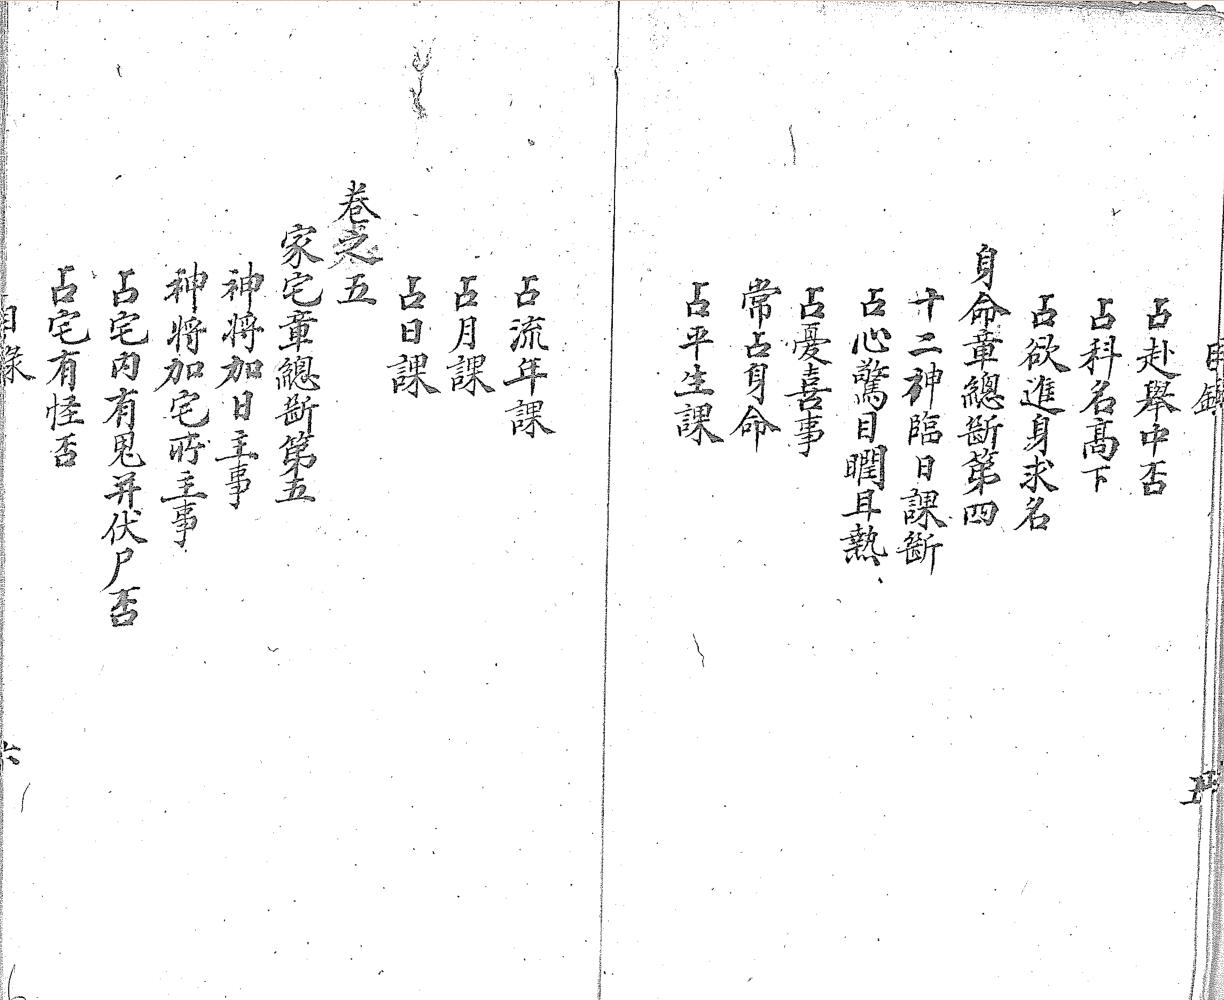 目錄
五
占赴舉中否
占科名高下
占欲進身求名
身命章總斷第四
十二神臨日課斷
占心驚目瞤耳熱
占憂喜事
常占身命
占平生課
占流年課
占月課
占日課
卷之五
家宅章總斷第五
神將加日主事
神將加宅所主事
占宅內有鬼并伏尸否
占宅有怪否
目錄
六